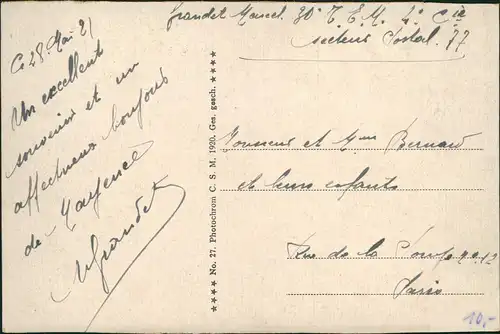 Grandet Marcel. 30e T. E. M. 4e Cie
Secteur Postal. 77
Ce 28. Mai 21
Un excellent
souvenir et un
affectueux bonjour
de Mayence
MGrandet
**** No. 27. Photochrom C. S. M. 1920. Ges. gesch. ****
Monsieur et Mme Bernard
et leurs enfants
Rue de la Pompe no 12
Paris
10,-